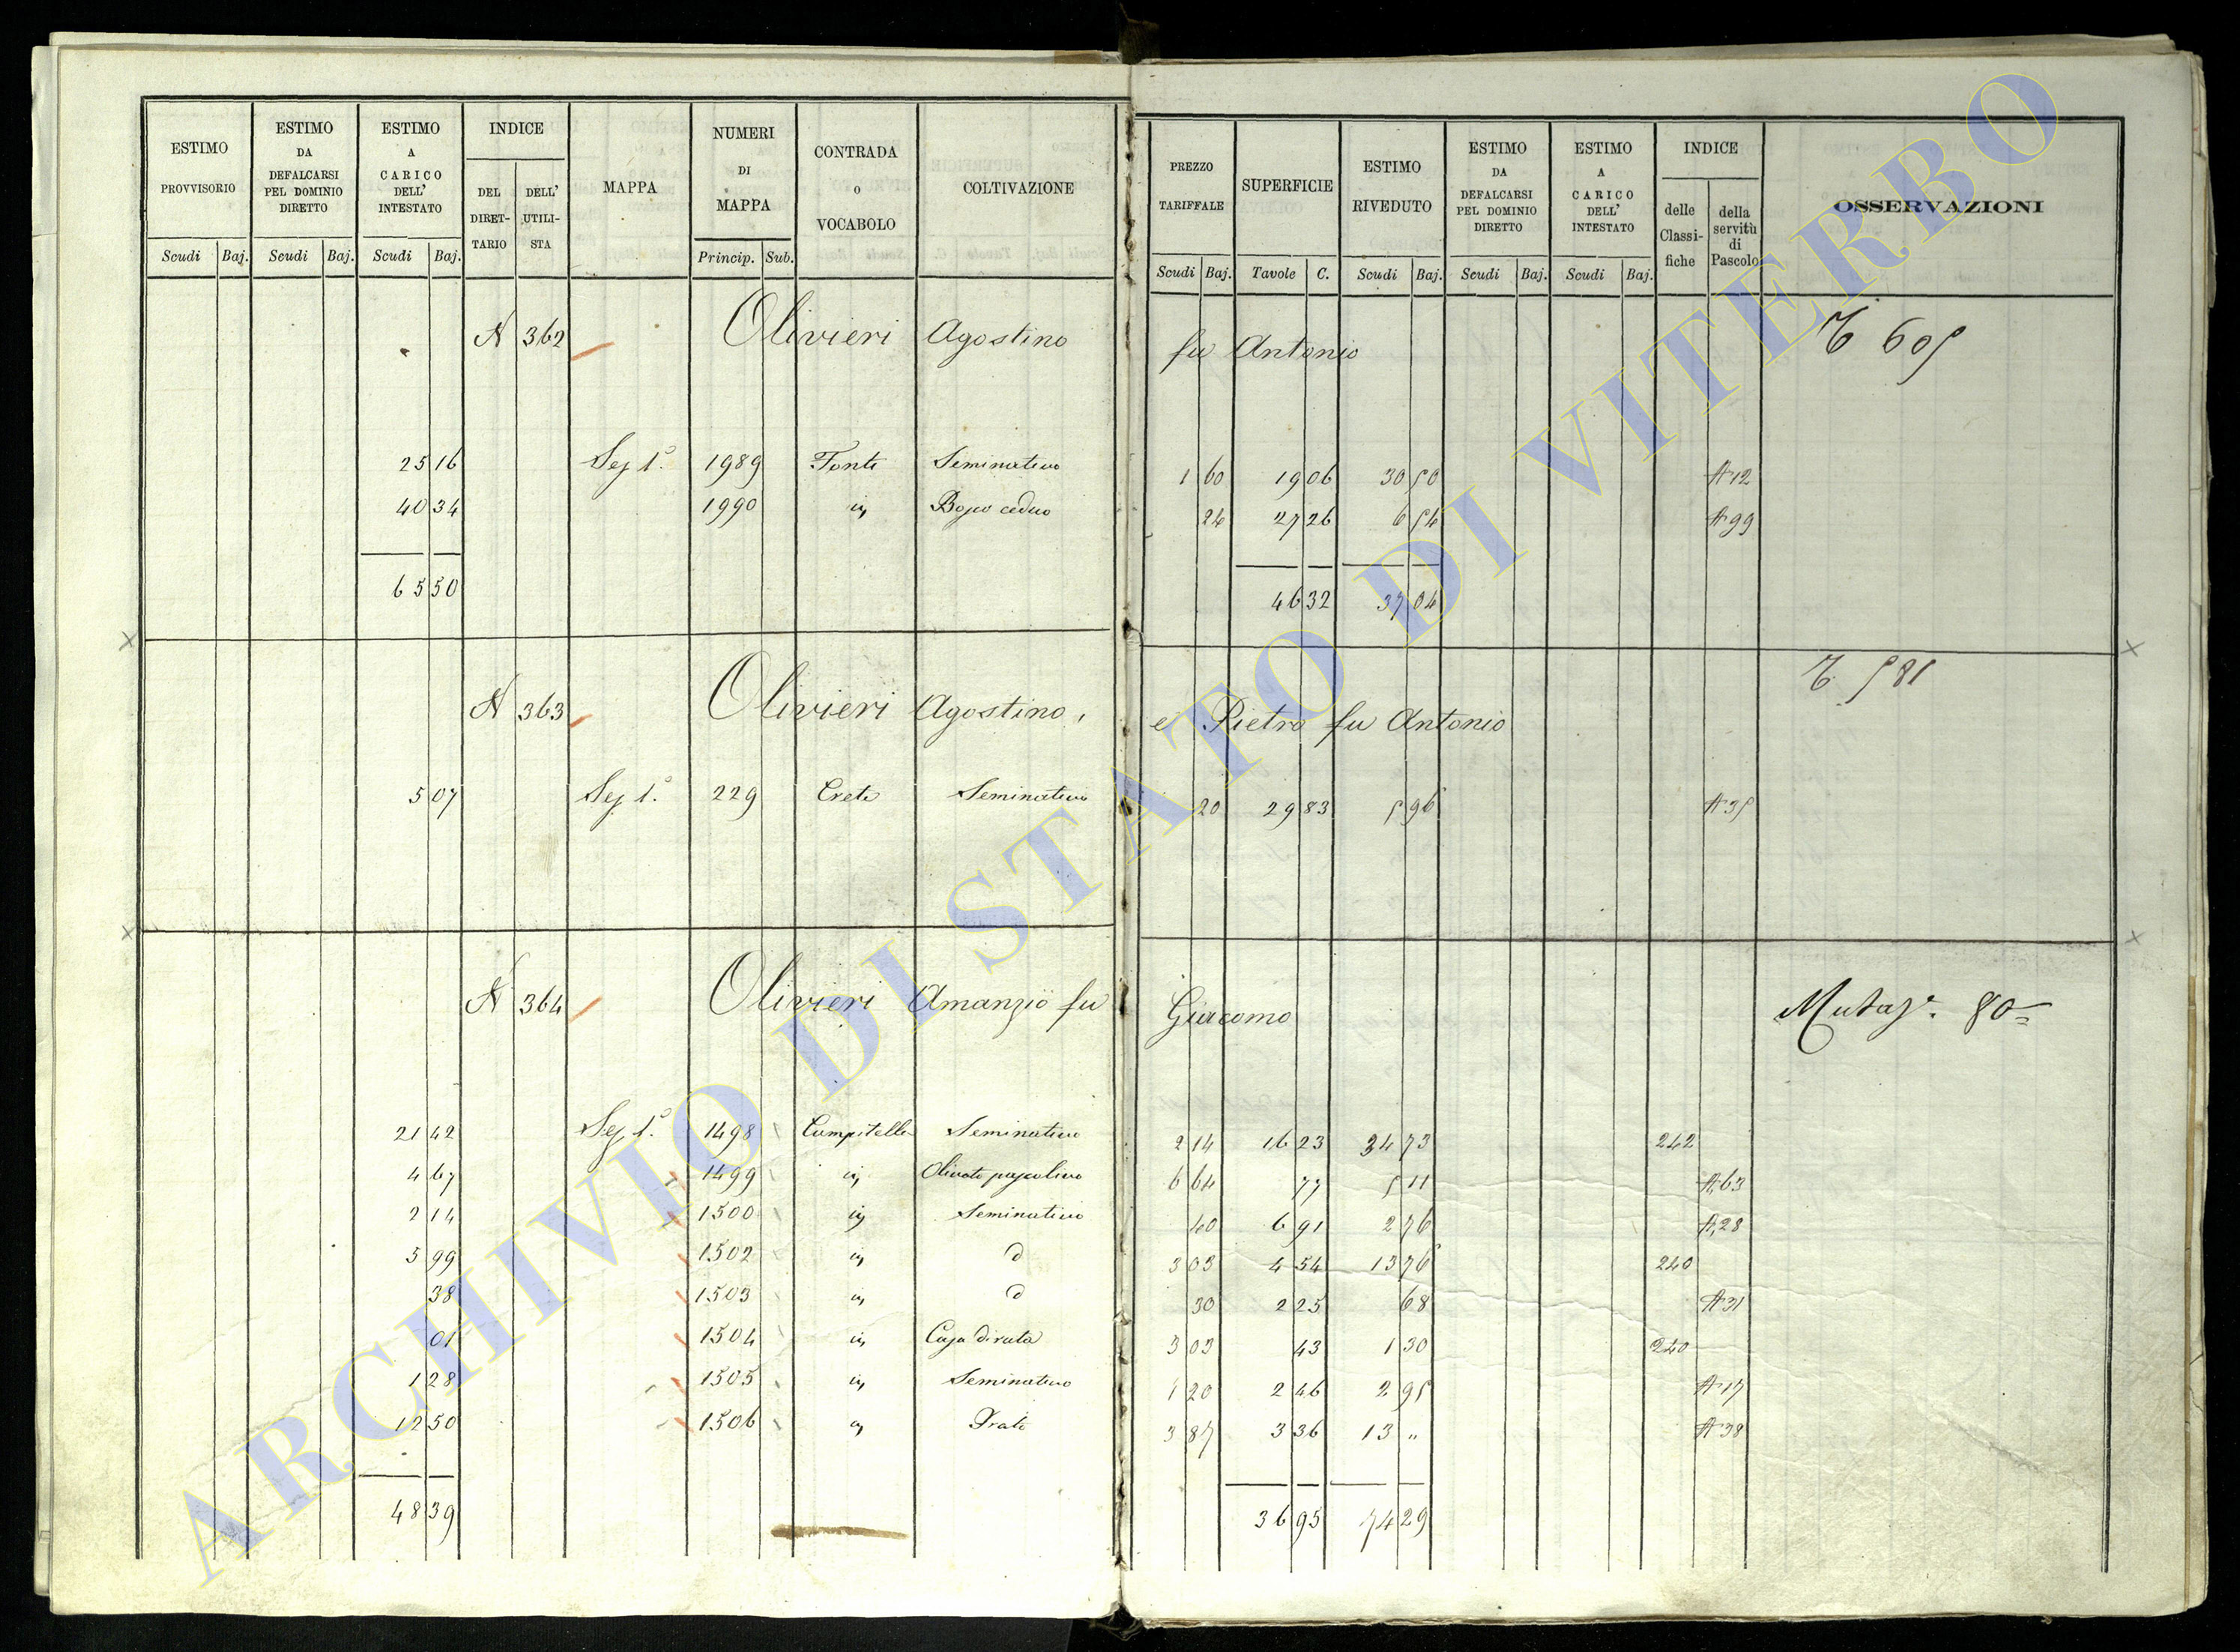 ESTIMO PROVVISORIO
ESTIMO DA DEFALCARSI PEL DOMINIO DIRETTO
ESTIMO A CARICO DELL' INTESTATO
INDICE
DEL DIRET-TARIO
DELL' UTILI-STA
MAPPA
NUMERI DI MAPPA
CONTRADA O VOCABOLO
COLTIVAZIONE
PREZZO TARIFFALE
SUPERFICIE
ESTIMO RIVEDUTO
ESTIMO DA DEFALCARSI PEL DOMINIO DIRETTO
ESTIMO A CARICO DELL' INTESTATO
INDICE
delle Classi-fiche
della servitù di Pascolo
OSSERVAZIONI
Scudi Baj. Scudi Baj. Scudi Baj. Princip. Sub. Scudi Baj. Tavole C. Scudi Baj. Scudi Baj. Scudi Baj.
N 362 Olivieri Agostino fu Antonio 605
25 16 Sez 1ª 1989 Fonte Seminativo 1 60 19 06 30 50 A 12
40 34 1990 Bosco ceduo 24 27 26 6 54 A 99
65 50 46 32 37 04
N 363 Olivieri Agostino, e Pietro fu Antonio 581
5 07 Sez 1ª 229 Crete Seminativo 20 29 83 5 96 A 35
N 364 Olivieri Amanzio fu Giacomo Mutaze 80
21 42 Sez 1ª 1498 Campitelle Seminativo 2 14 16 23 34 73 242
4 67 1499 Olivato pascolivo 6 64 77 5 11 A 63
2 14 1500 Seminativo 40 6 91 2 76 A 28
5 99 1502 d 3 03 4 54 13 76 240
38 1503 d 30 2 25 68 A 31
01 1504 Casa diruta 3 03 43 1 30 240
1 28 1505 Seminativo 1 20 2 46 2 95 A 17
12 50 1506 Prato 3 87 3 36 13 " A 38
48 39 36 95 74 29
ARCHIVIO DI STATO DI VITERBO